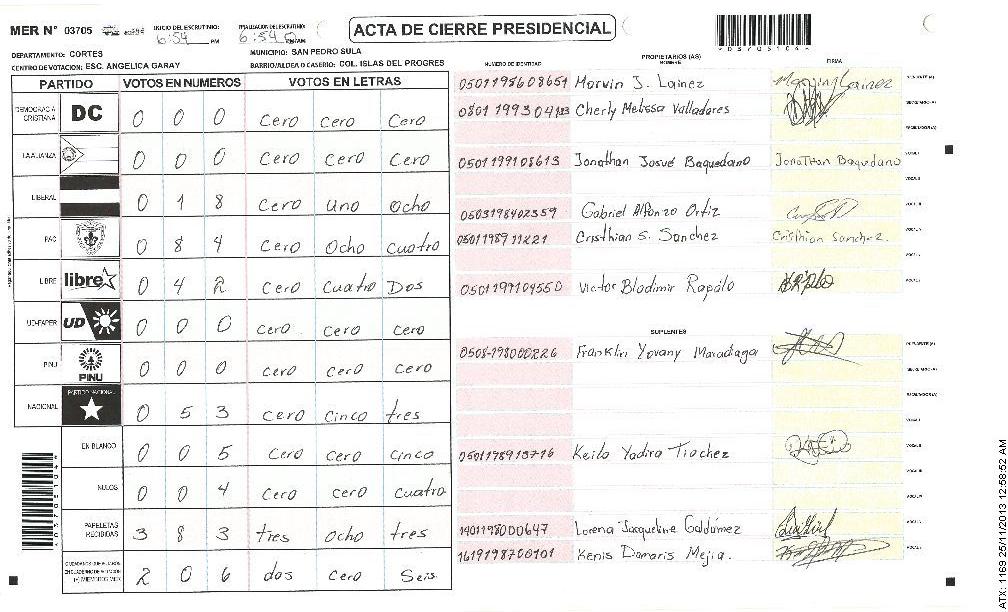 MER N° 03705 INICIO DEL ESCRUTINIO: 6:54 PM 6:54 PM/AM ACTA DE CIERRE PRESIDENCIAL
DEPARTAMENTO: CORTES MUNICIPIO: SAN PEDRO SULA
CENTRO DE VOTACION: ESC. ANGELICA GARAY BARRIO/ALDEA O CASERIO: COL. ISLAS DEL PROGRES
NUMERO DE IDENTIDAD PROPIETARIOS (AS) NOMBRE FIRMA
PARTIDO VOTOS EN NUMEROS VOTOS EN LETRAS
DEMOCRACIA CRISTIANA DC 0 0 0 cero cero Cero
LA ALIANZA 0 0 0 Cero Cero Cero
LIBERAL 0 1 8 Cero Uno Ocho
PAC 0 8 4 Cero Ocho Cuatro
LIBRE libre 0 4 2 Cero Cuatro Dos
UD-FAPER UD 0 0 0 Cero Cero Cero
PINU PINU 0 0 0 cero cero Cero
NACIONAL PARTIDO NACIONAL 0 5 3 Cero Cinco tres
EN BLANCO 0 0 5 Cero Cero Cinco
NULOS 0 0 4 Cero cero Cuatro
PAPELETAS RECIBIDAS 3 8 3 tres ocho tres
2 0 6 dos Cero Seis
0501195608651 Marvin J. Lainez Marvin J Lainez
Cherly Melissa Valladares
0501199108613 Jonathan Josué Baquedano Jonathan Baquedano
0503198402359 Gabriel Alfonzo Ortiz
Cristhian S. Sanchez Cristhian Sanchez.
0501199104550 Victor Bladimir Rapalo
SUPLENTES
0508-198000226 Franklin Yovany Maradiaga
0501198913716 Keila Yadira Trochez
1401198000647 Lorena Jacqueline Galdámez
1619198700101 Kenis Damaris Mejia.
*03705104*
ATX: 1169 25/11/2013 12:58:52 AM